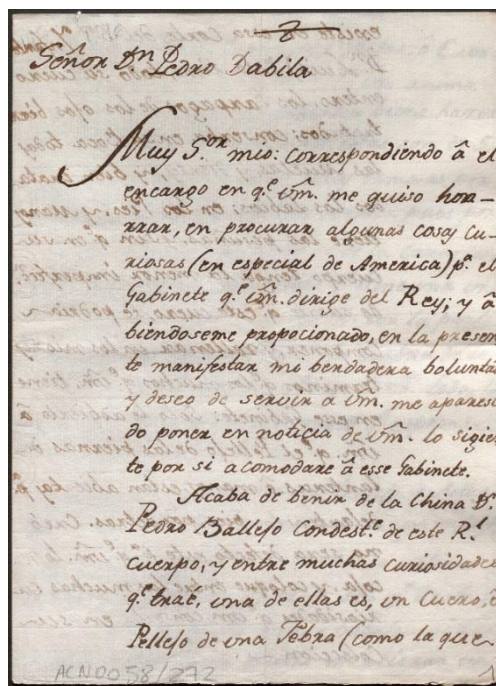 Señor Dn. Pedro Dabila
Muy Sor. mio: correspondiendo â el
encargo en qe. vm. me quiso hon-
rrar, en procurar algunas cosas cu-
riosas (en especial de America) pa. el
Gabinete qe. vm. dirige del Rey; y â
biendoseme propocionado, en la presen
te manifestar mi berdadera boluntad
y deseo de servir a vm. me apareci
do poner en noticia de vm. lo sigien
te por si acomodare â esse Gabinete.
Acaba de benir de la China Dn.
Pedro Ballejo Condeste. de este Rl.
cuerpo, y entre muchas curiosidades
qe. trae, una de ellas es, un Cuero, ô
Pellejo de una Zebra (como la que
ACN0058/272
1